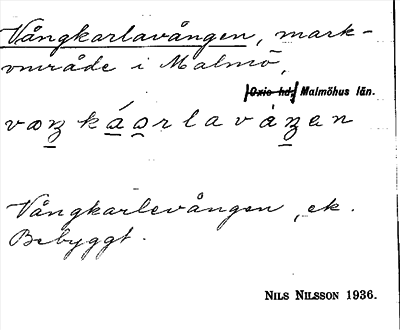 Vångkarlavången, mark-
område i Malmö,
[Oxie hd,] Malmöhus län.
Vångkarlevången, ek.
Bebyggt.
NILS NILSSON 1936.